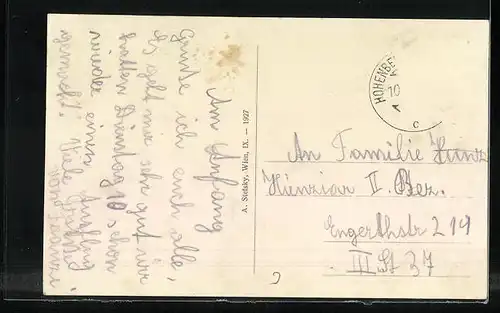 Am Anfang
Grüße ich euch alle,
Es geht mir sehr gut wir
hatten Dienstag 10 schon
wieder einen Ausflug
gemacht. Viele
von
A. Stefsky, Wien, IX. — 1927
HOHENBE
10
c
An Familie
II. Bez.
Engerthstr 219
III St 37